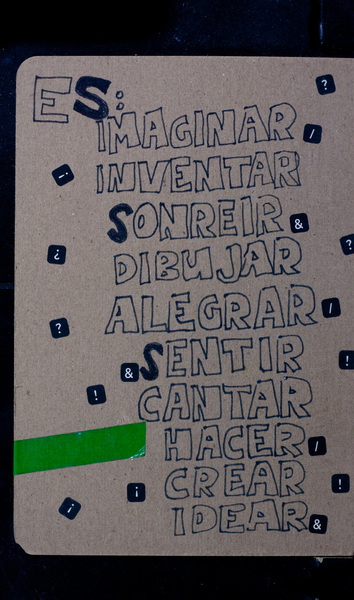 ES:
?
IMAGINAR /
¡
INVENTAR
SONREIR &
?
¿
DIBUJAR
ALEGRAR /
?
SENTIR !
&
CANTAR
!
HACER /
CREAR !
¡
IDEAR &
¡